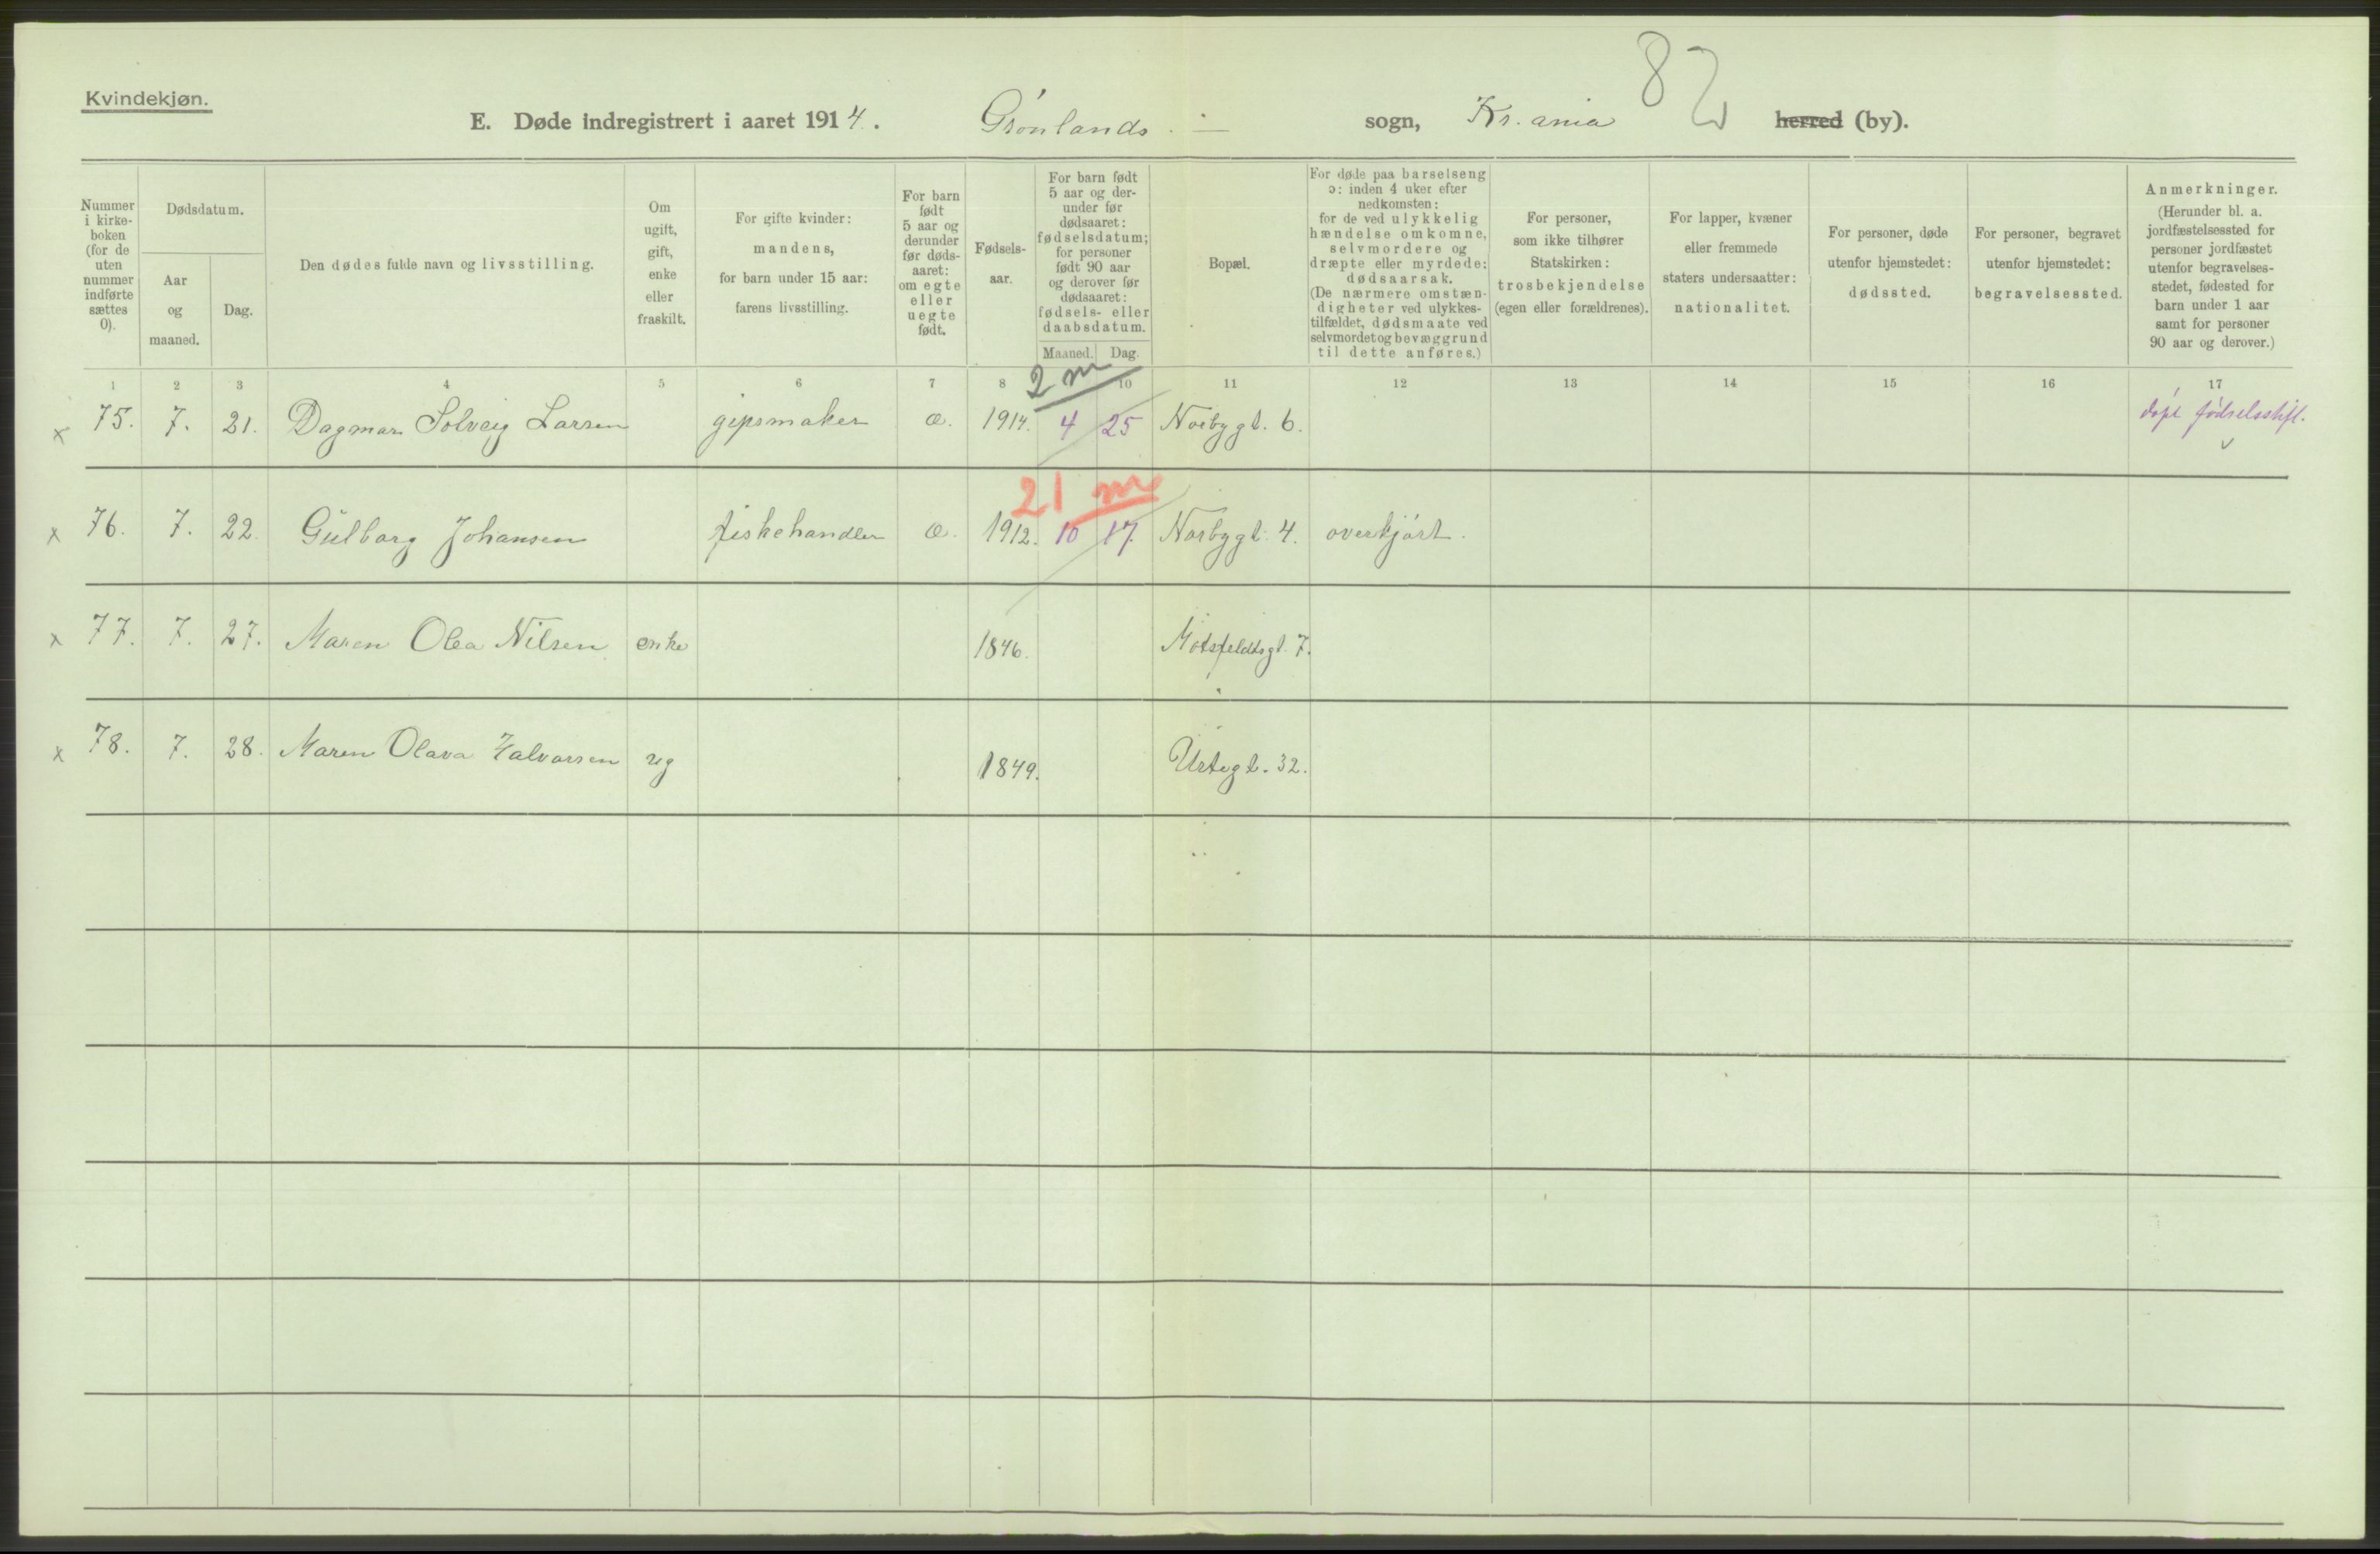 Kvindekjøn.
82
E. Døde indregistrert i aaret 1914. Grønlands sogn, Kr.ania herred (by).
Nummer i kirkeboken (for de uten nummer indførte sættes 0).
Dødsdatum.
Aar og maaned.
Dag.
Den dødes fulde navn og livsstilling.
Om ugift, gift, enke eller fraskilt.
For gifte kvinder: mandens, for barn under 15 aar: farens livsstilling.
For barn født 5 aar og derunder før dødsaaret: om egte eller uegte født.
Fødselsaar.
For barn født 5 aar og derunder før dødsaaret: fødselsdatum; for personer født 90 aar og derover før dødsaaret: fødsels- eller daabsdatum.
Maaned. Dag.
Bopæl.
For døde paa barselseng ɔ: inden 4 uker efter nedkomsten; for de ved ulykkelig hændelse omkomne, selvmordere og dræpte eller myrdede: dødsaarsak. (De nærmere omstændigheter ved ulykkestilfældet, dødsmaate ved selvmordet og bevæggrund til dette anføres.)
For personer, som ikke tilhører Statskirken: trosbekjendelse (egen eller forældrenes).
For lapper, kvæner eller fremmede staters undersaatter: nationalitet.
For personer, døde utenfor hjemstedet: dødssted.
For personer, begravet utenfor hjemstedet: begravelsessted.
Anmerkninger. (Herunder bl. a. jordfæstelsessted for personer jordfæstet utenfor begravelsesstedet, fødested for barn under 1 aar samt for personer 90 aar og derover.)
1 2 3 4 5 6 7 8 10 11 12 13 14 15 16 17
2 m
x 75. 7. 21. Dagmar Solveig Larsen gipsmaker æ. 1914. 4 25 Norbygt. 6. døpt fødselsstift.
21 m
x 76. 7. 22. Gulborg Johansen fiskehandler æ. 1912. 10 17 Norbygt. 4. overkjørt.
x 77. 7. 27. Maren Olea Nilsen enke 1846. Motsfeldtsgt. 7.
x 78. 7. 28. Maren Olava Halvorsen ug 1849. Urtegt. 32.